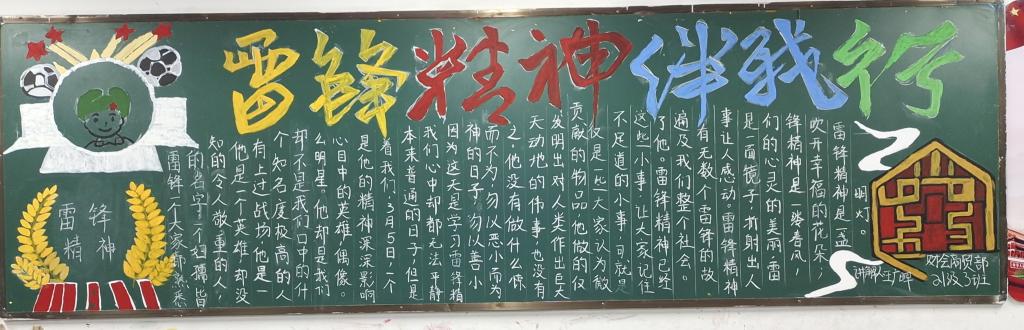 雷锋精神伴我行
雷锋精神是一盏
明灯。
吹开幸福的花朵，
锋精神是一缕春风，
们的心灵的美丽。雷
是一面镜子，折射出人
事让人感动。雷锋精神
有无数个雷锋的故
遍及我们整个社会。
了他。雷锋精神已经
这些小事，让大家记住
不足道的小事，可就是
仅是一些大家认为微
贡献的物品，他做的仅
发明出对人类作出巨大
天动地的伟事，也没有
之，他没有做什么惊
而不为，勿以恶小而为
神的日子，勿以善小
因为这天是学习雷锋精
我们心中却都无法平静
本来普通的日子，但是
着我们。3月5日，一个
是他的精神深深影响
心目中的英雄，偶像。
么明星。他却是我们
却不是我们口中的什
个知名度极高的人
有上过战场，他是一
他是一个英雄，却没
知的，令人敬重的人。
的名字。一个妇孺皆
雷锋，一个大家都熟悉
雷锋
精神
财会商贸部
21级3班
讲解